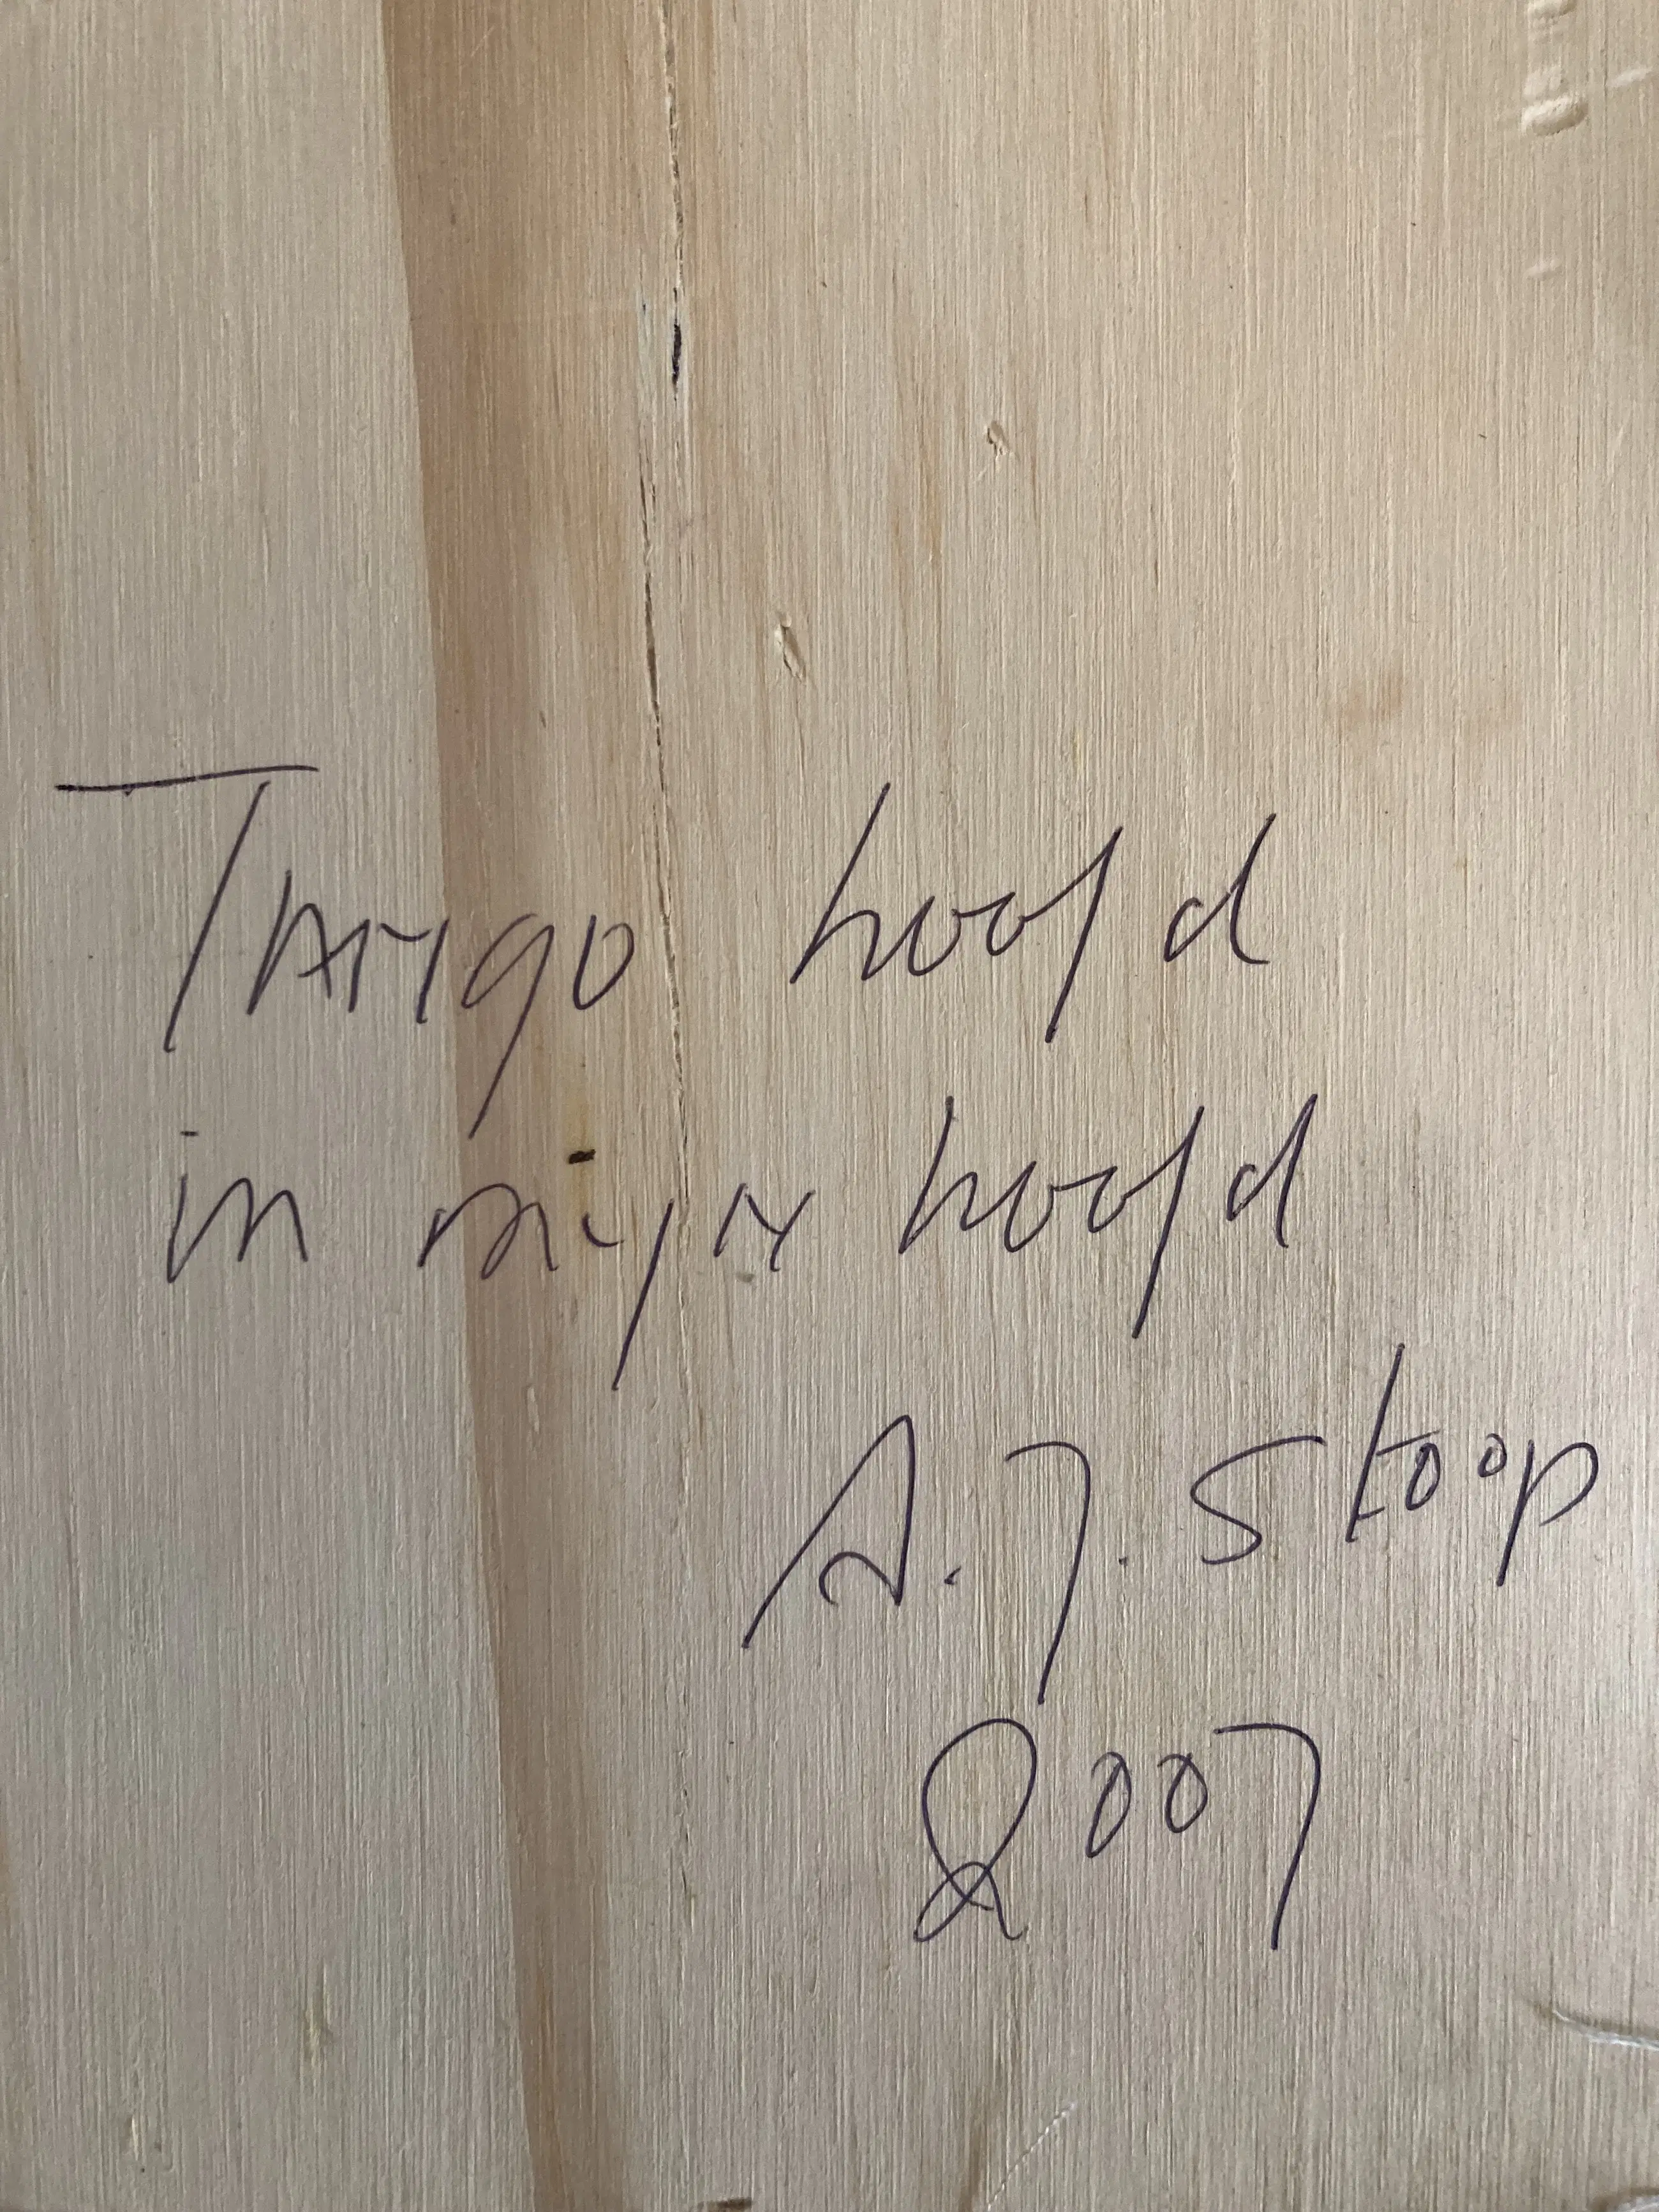 Tango hoofd
in mijn hoofd
A.J. Stoop
2007